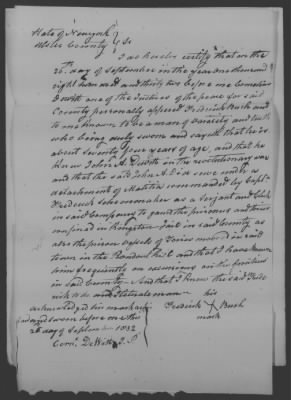 State of New york } ss
Ulster County
I do hereby certify that on the
26th day of September in the year one thousand
eight hundred and thirty two before me Cornelius
D witt one of the Justices of the peace for said
County personally appeared Frederick Bush and
to me known to be a man of veracity and truth
who being duly sworn and sayeth that he is
about seventy four years of age, and that he
knew John A. DeWitt in the revolutionary war
and that the said John A. did serve under a
detachment of Militia commanded by Capt
Frederick Schoonmaker as a Serjant and Clerk
in said Company to guard the prisoners and tories
confined in Kingston Jail in said County as
also the prison vessels of Tories in said
town in the and that I have
him frequently on excursions on the frontiers
in said County And that I knew the said Frede
rick to be an illiterate man his
acknowledged his mark Fredrick X Bush
and sworn before me this mark
26 day of September 1832
Corns. DeWitt J. P